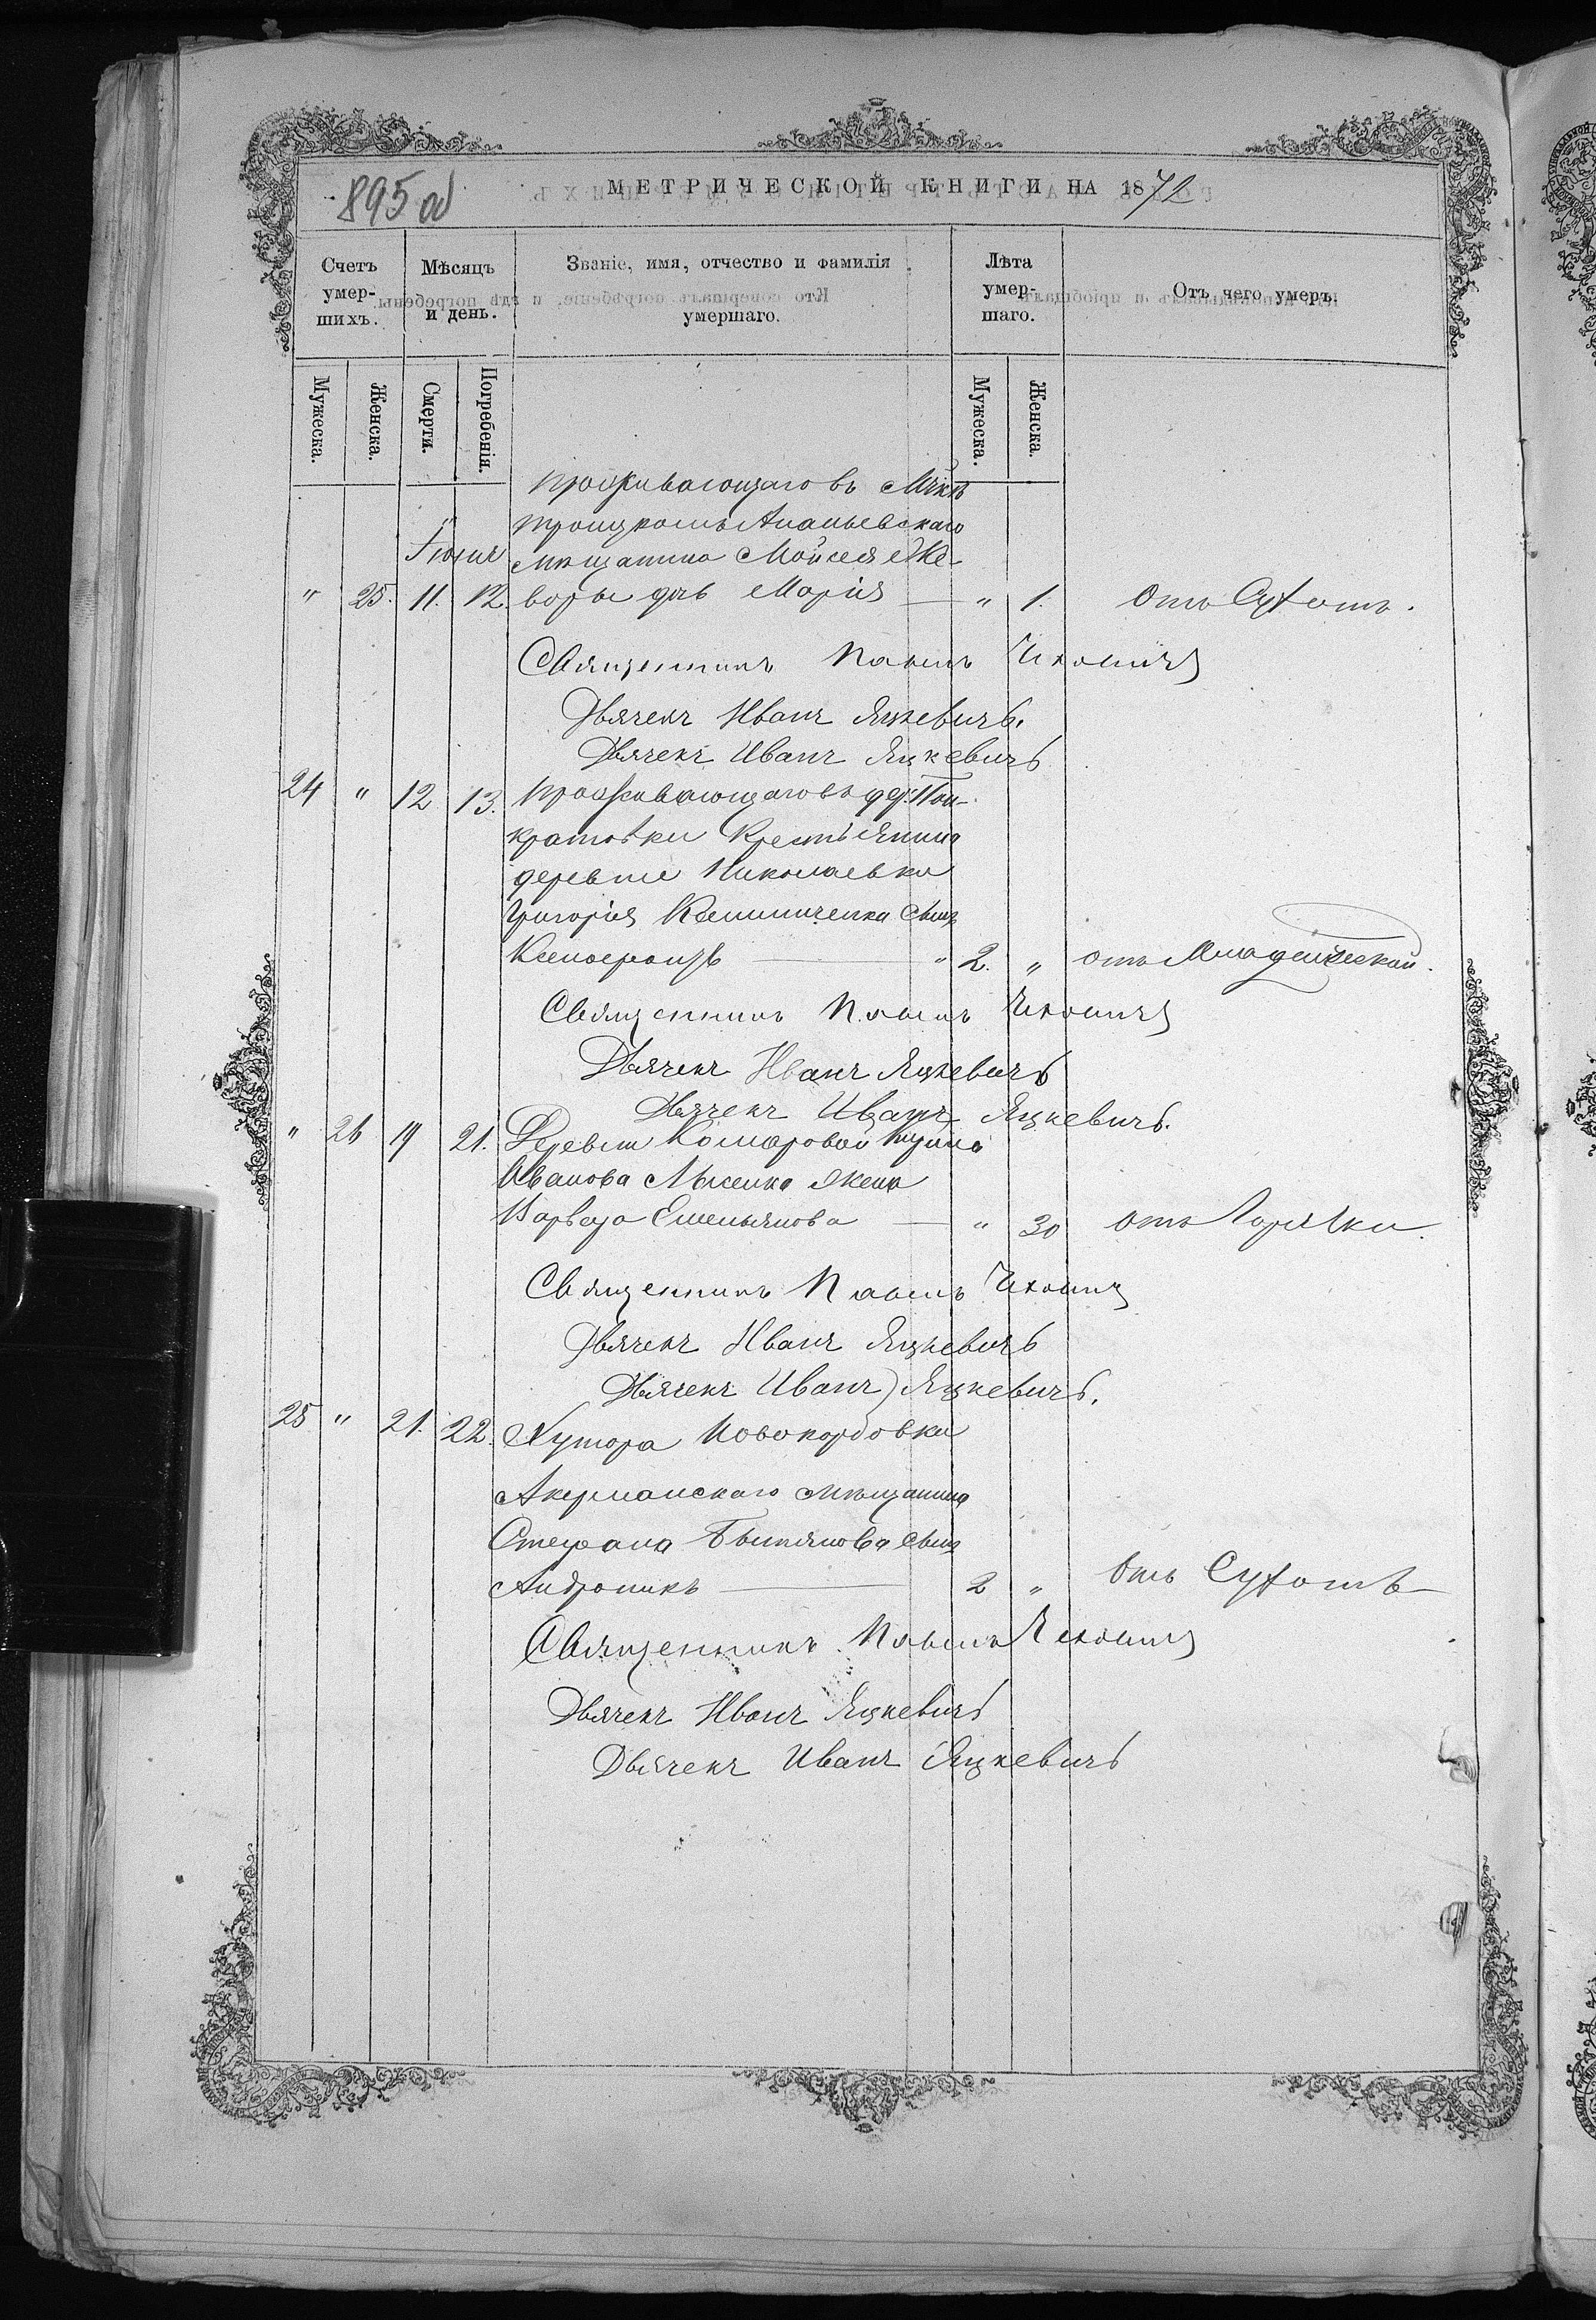 895 об
МЕТРИЧЕСКОЙ КНИГИ НА 1872
Счетъ умер-шихъ.
Мѣсяцъ и день.
Званіе, имя, отчество и фамилія умершаго.
Лѣта умер-шаго.
Отъ чего умеръ.
Мужеска.
Женска.
Смерти.
Погребенія.
Мужеска.
Женска.
проживающаго въ М-чкѣ
Троицкомъ Ананьевскаго
Іюнь мѣщанина Мойсея Же-
" 25. 11. 12. воры дчь Марія — " 1. Отъ Сухотъ.
Священникъ Павелъ
Дьячекъ Иванъ Яцкевичъ.
Дьячекъ Иванъ Яцкевичъ
24 " 12 13. Проживающаго въ дер. Пан-
кратовки Крестьянина
деревни Николаевки
Григорія сынъ
2. " отъ Младенческой.
Священникъ Павелъ
Дьячекъ Иванъ Яцкевичъ
Дьячекъ Иванъ Яцкевичъ.
" 26 19 21. Деревни Комаровой
Иванова Лысенка жена
Варвара Емельянова — " 30 отъ Горячки.
Священникъ Павелъ
Дьячекъ Иванъ Яцкевичъ
Дьячекъ Иванъ Яцкевичъ.
25 " 21. 22. Хутора
Акерманскаго мѣщанина
Стефана сынъ
Андроникъ — 2 " Отъ Сухотъ
Священникъ Павелъ
Дьячекъ Иванъ Яцкевичъ
Дьячекъ Иванъ Яцкевичъ